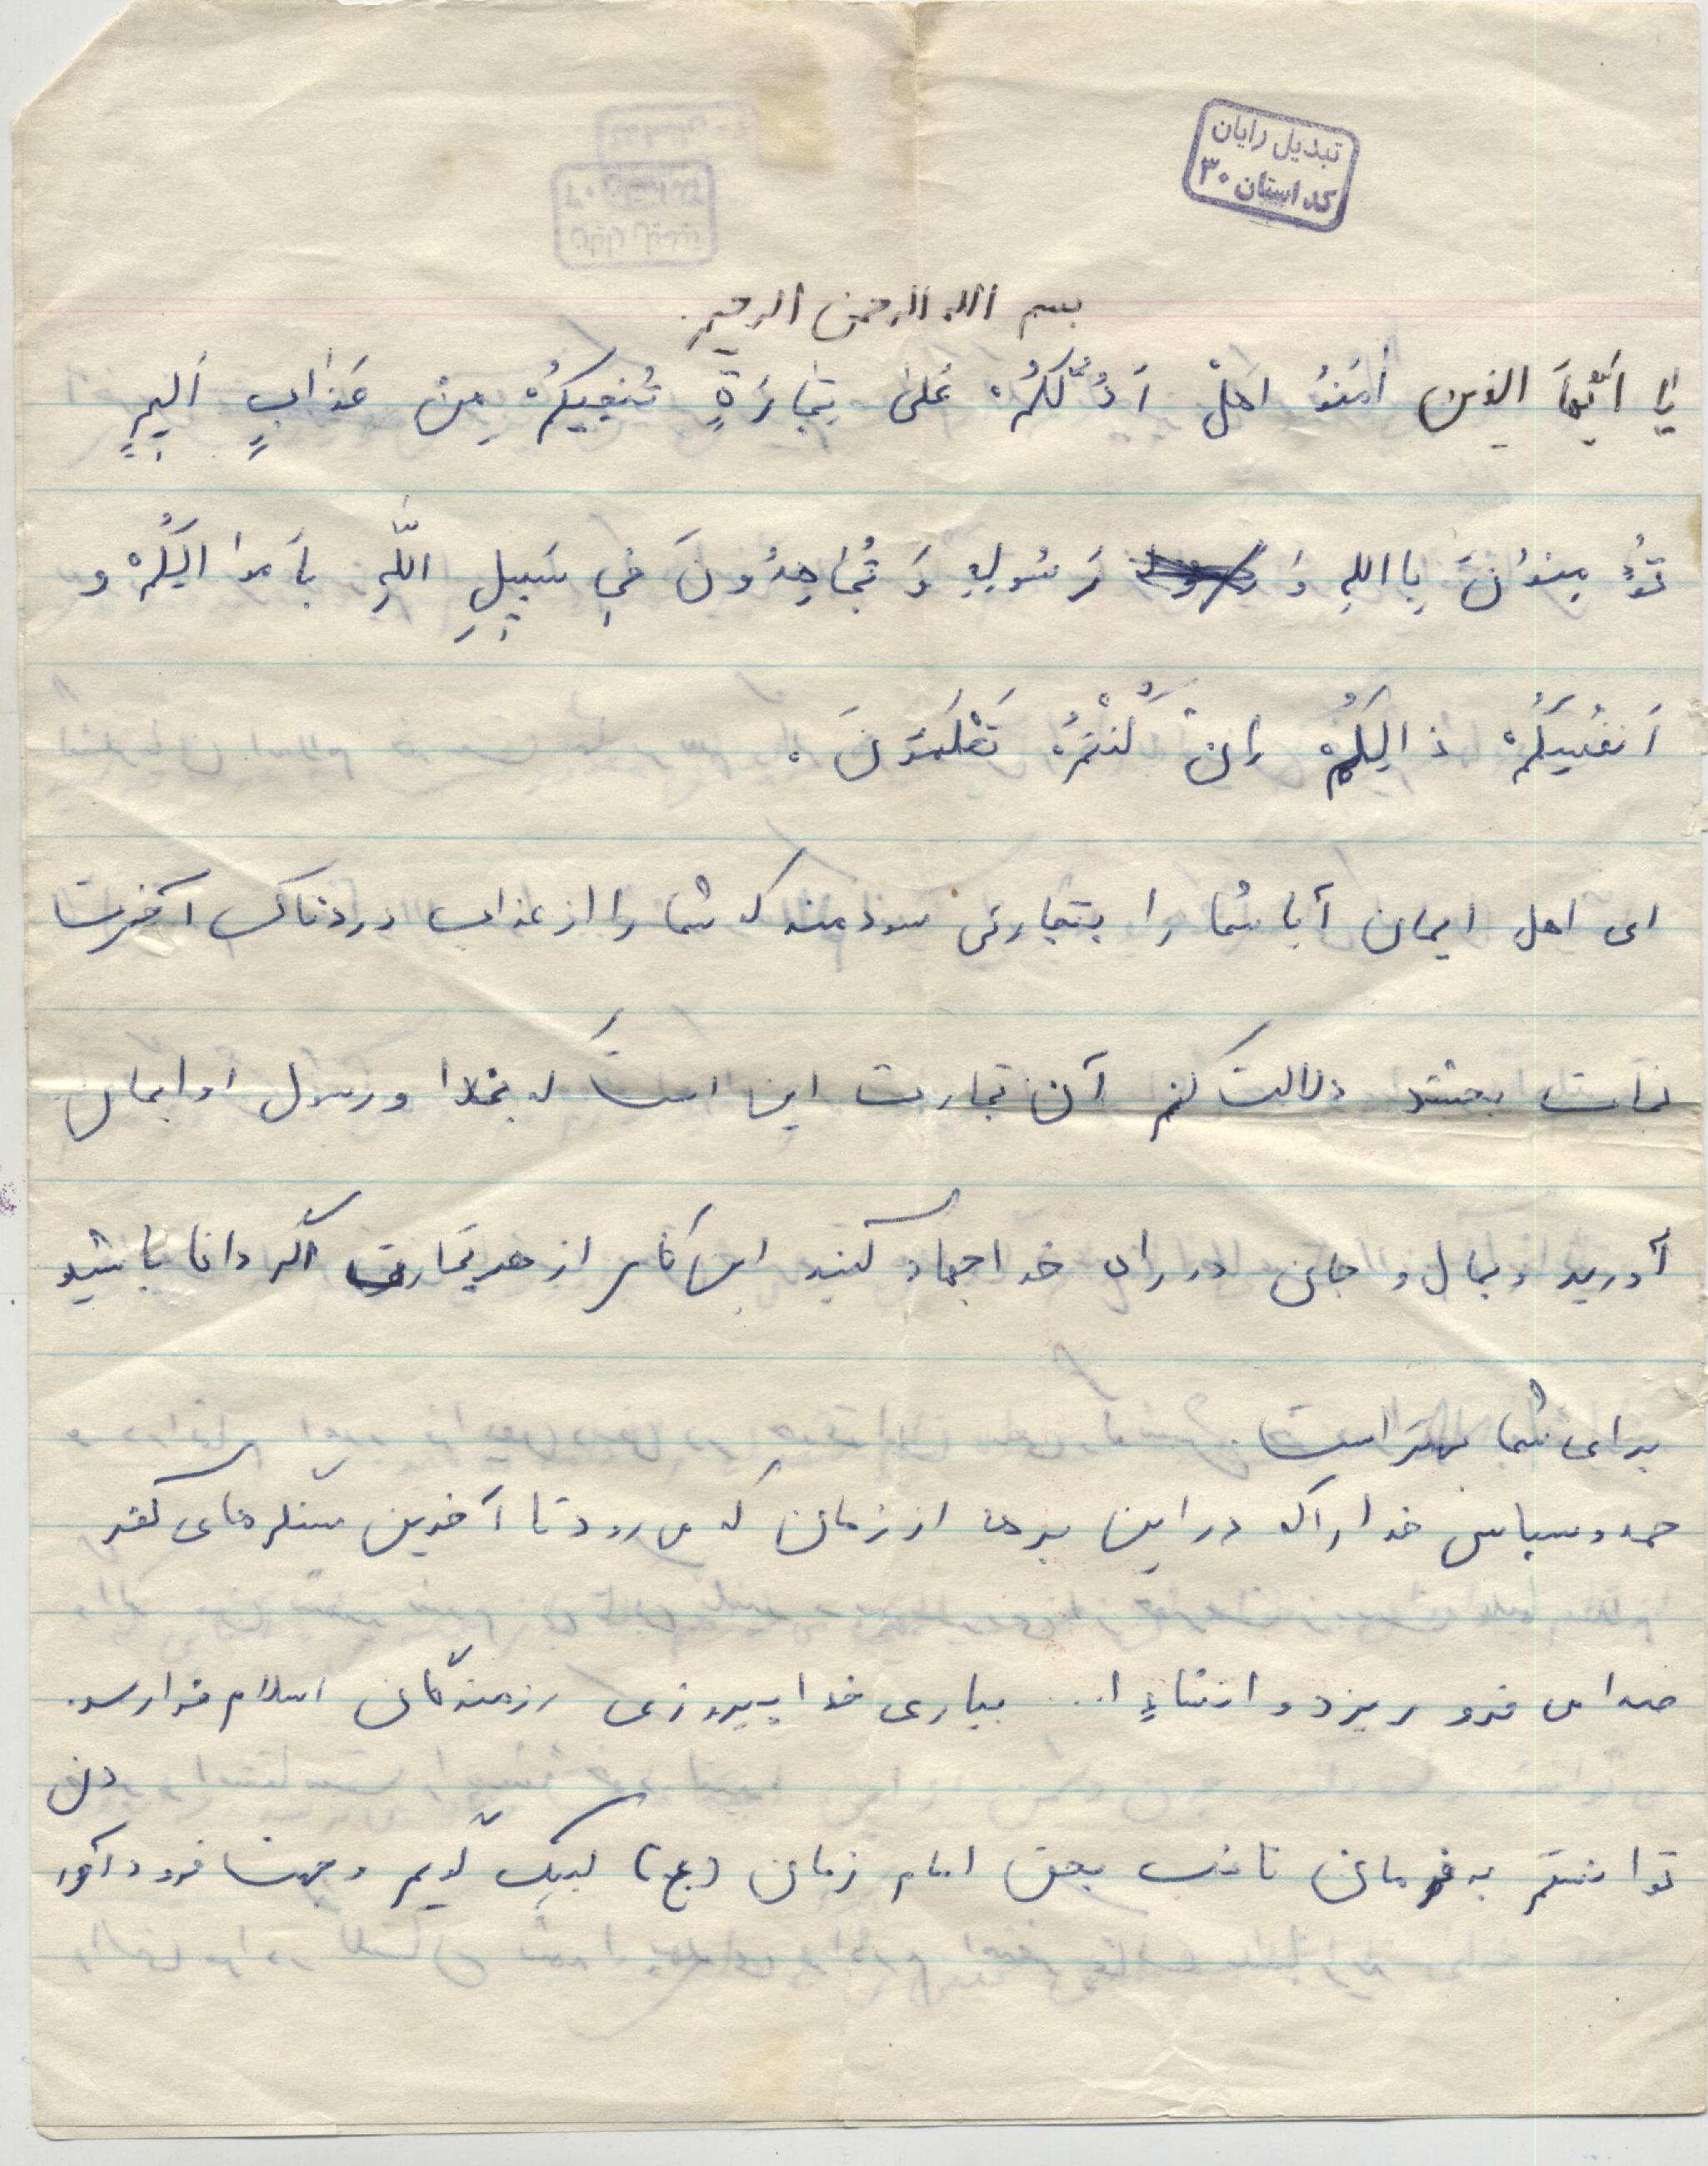 تبدیل رایان
کد استان ۳۰
بسم الله الرحمن الرحیم
یا اَیُّهاَ الذین اٰمَنوُ اهَلْ اَدُلُّکُمْ عَلیٰ تِجٰارَةٍ تُنجیکُمْ مِنْ عَذٰابٍ اَلیمٍ
تُؤمِنوُنَ بِاالله وَ رَسُولِهِ وَ تُجٰاهِدُونَ فی سَبیلِ اللّهِ بأَموٰالِکُمْ و
اَنفُسِکُمْ ذالِکُمْ اِن کُنْتُمْ تَعْلَمَوُنَ .
ای اهل ایمان آیا شما را بتجارتی سودمند که شما را از عذاب دردناک آخرت
نجات بخشد دلالت کنم آن تجارت این است که بخدا و رسول او ایمان
آورید و بمال و جان در راه خدا جهاد کنید این کار از هر تجارت اگر دانا باشید
برای شما بهتر است .
حمد و سپاس خدا را که در این برهه از زمان که می رود تا آخرین سنگرهای کفر
صدامی فرو ریزد و انشاء ا... بیاری خدا پیروزی رزمندگان اسلام فرا رسد.
دین
توانستم به فرمان نائب بحق امام زمان (عج) لبیک گویم و جهت فرود آور